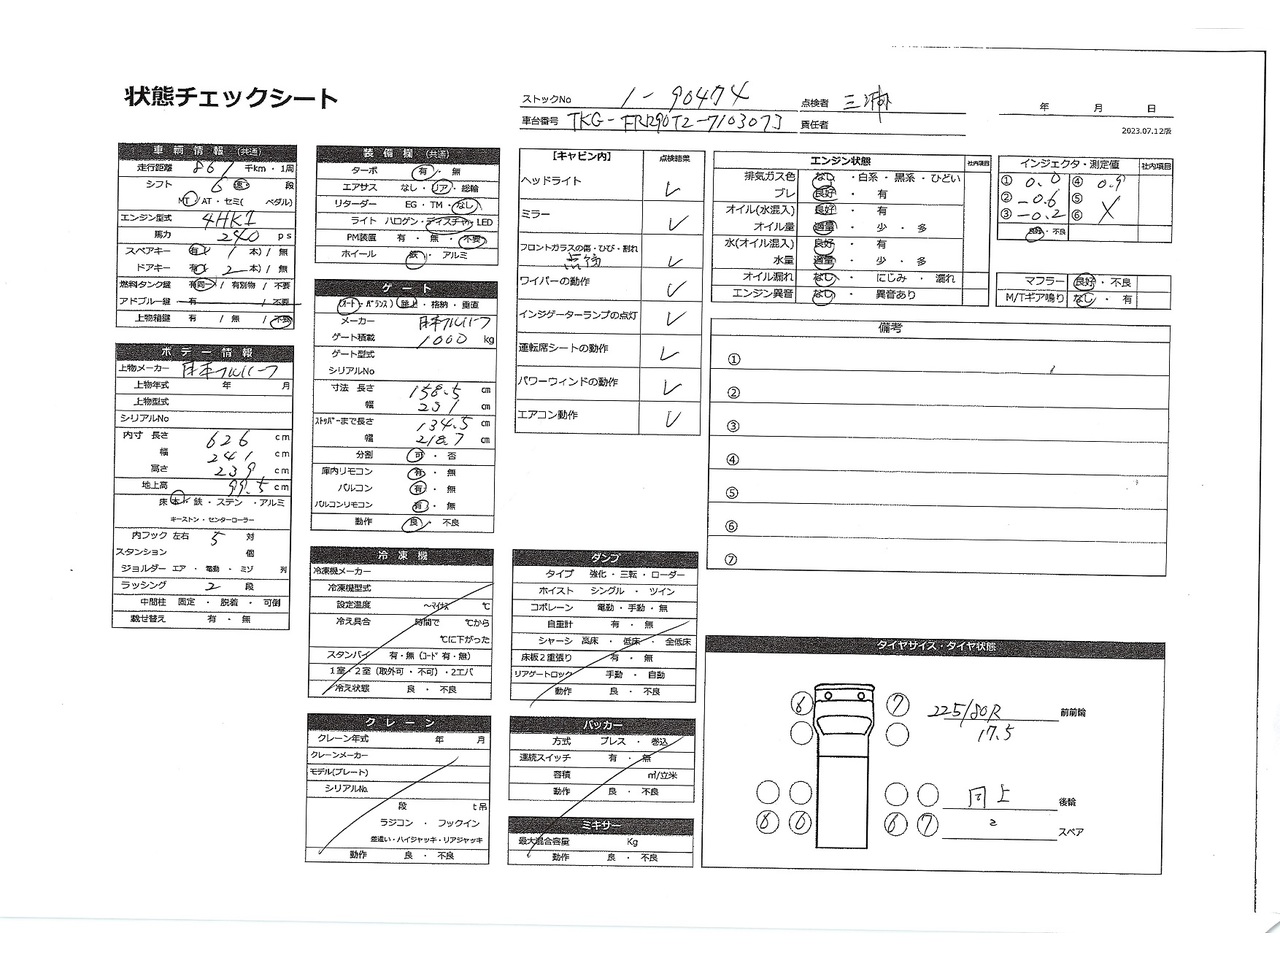 状態チェックシート
ストックNo 1-90474 点検者 三浦 年 月 日
車台番号 TKG-FRR90T2-7103073 責任者
2023.07.12版
車輌情報 (共通)
走行距離 867 千km・1周
シフト 6 速 段
MT / AT・セミ( ペダル)
エンジン型式 4HK1
馬力 240 ps
スペアキー 有( 1 本) / 無
ドアキー 有( 2 本) / 無
燃料タンク鍵 有同一 / 有別物 / 不要
アドブルー鍵 有 / 不要
上物箱鍵 有 / 無 / 不要
ボデー情報
上物メーカー 日本フルハーフ
上物年式 年 月
上物型式
シリアルNo
内寸 長さ 626 cm
幅 241 cm
高さ 239 cm
地上高 99.5 cm
床 木・鉄・ステン・アルミ
キーストン・センターローラー
内フック 左右 5 対
スタンション 個
ジョルダー エア ・ 電動 ・ ミゾ 列
ラッシング 2 段
中間柱 固定 ・ 脱着 ・ 可倒
載せ替え 有 ・ 無
装備欄 (共通)
ターボ 有 ・ 無
エアサス なし・リア・総輪
リターダー EG・TM・なし
ライト ハロゲン・ディスチャ・LED
PM装置 有 ・ 無 ・ 不要
ホイール 鉄 ・ アルミ
ゲート
メーカー 日本フルハーフ
ゲート積載 1000 kg
ゲート型式
シリアルNO
寸法 長さ 158.5 cm
幅 231 cm
ストッパーまで長さ 134.5 cm
幅 218.7 cm
分割 可 ・ 否
庫内リモコン 有 ・ 無
バルコン 有 ・ 無
バルコンリモコン 有 ・ 無
動作 良 ・ 不良
冷凍機
冷凍機メーカー
冷凍機型式
設定温度 ～マイナス ℃
冷え具合 時間で ℃から
℃に下がった
スタンバイ 有・無 (コード 有・無)
1室・2室 (取外可・不可)・2エバ
冷え状態 良 ・ 不良
クレーン
クレーン年式 年 月
クレーンメーカー
モデル(プレート)
シリアルNo.
段 t吊
ラジコン ・ フックイン
差違い・ハイジャッキ・リアジャッキ
動作 良 ・ 不良
【キャビン内】 点検結果
ヘッドライト ✓
ミラー ✓
フロントガラスの傷・ひび・割れ ✓
ワイパーの動作 ✓
インジゲーターランプの点灯 ✓
運転席シートの動作 ✓
パワーウィンドの動作 ✓
エアコン動作 ✓
ダンプ
タイプ 強化・三転・ローダー
ホイスト シングル ・ ツイン
コボレーン 電動・手動・無
自重計 有 ・ 無
シャーシ 高床 ・ 低床 ・ 全低床
床板2重張り 有 ・ 無
リアゲートロック 手動 ・ 自動
動作 良 ・ 不良
パッカー
方式 プレス ・ 巻込
連続スイッチ 有 ・ 無
容積 ㎥/立米
動作 良 ・ 不良
ミキサー
最大混合容量 Kg
動作 良 ・ 不良
エンジン状態 社内項目
排気ガス色 なし ・白系・黒系・ひどい
ブレ 良好 ・ 有
オイル(水混入) 良好 ・ 有
オイル量 適量 ・ 少 ・ 多
水(オイル混入) 良好 ・ 有
水量 適量 ・ 少 ・ 多
オイル漏れ なし ・ にじみ ・ 漏れ
エンジン異音 なし ・ 異音あり
インジェクタ・測定値 社内項目
① 0.0 ④ 0.9
② -0.6 ⑤
③ -0.2 ⑥ X
良好・不良
マフラー 良好・不良
M/Tギア鳴り なし ・ 有
備考
①
②
③
④
⑤
⑥
⑦
タイヤサイズ・タイヤ状態
6 7 225/80R 17.5 前前輪
同上 後輪
8 6 6 7 2 スペア